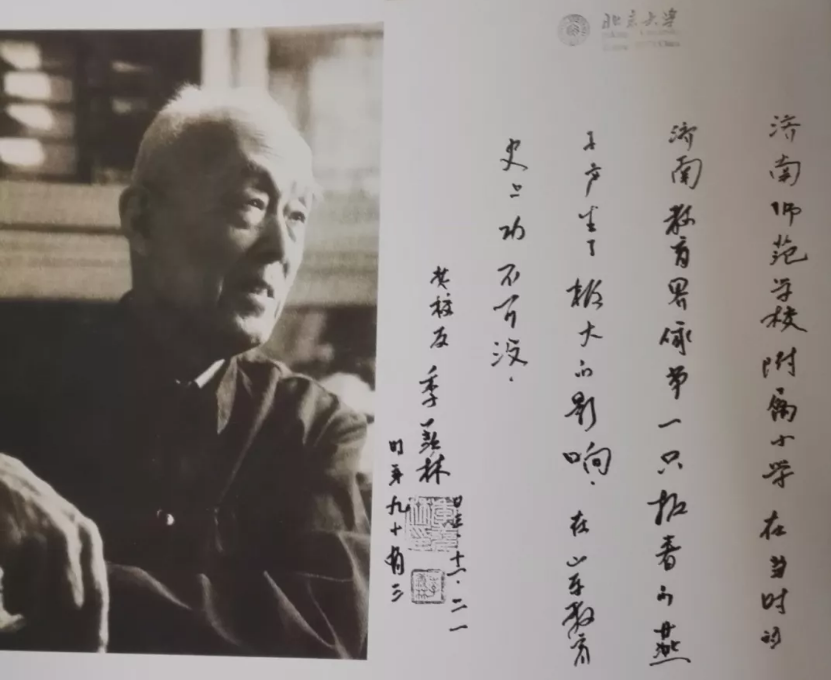 北京大学
济南师范学校附属小学在当时的
济南教育界像第一只报春的燕
子产生了极大的影响，在山东教育
史上功不可没。
老校友 季羡林
时年九十有三